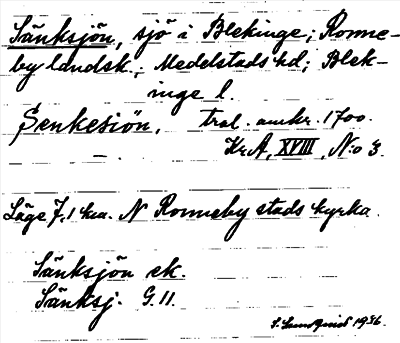 Sänksjön, sjö i Blekinge; Ronne-
by landsk.; Medelstads hd; Blek-
inge l.
Senkesiön, trol. omkr. 1700.
Kr.A, XVIII, N:o 3.
Läge 7,1 km. N Ronneby stads kyrka.
Sänksjön ek.
Sänksj. G.11.
S. Lundquist 1936.